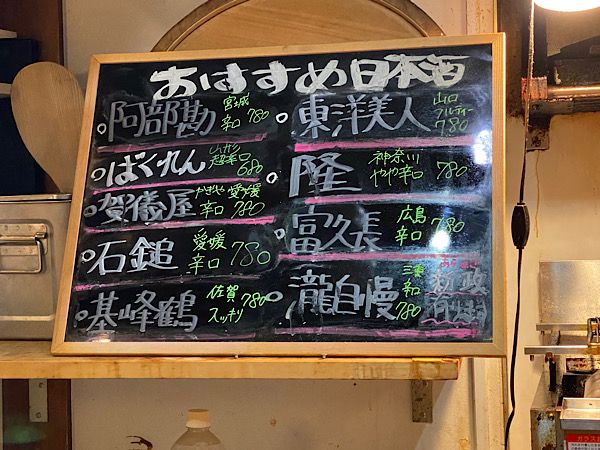 おすすめ日本酒
阿部勘 宮城 辛口 780
ばくれん 超辛口 680
賀儀屋 かぎや 愛媛 辛口 780
石鎚 愛媛 辛口 780
基峰鶴 佐賀 スッキリ 780
東洋美人 山口 フルーティー 780
隆 神奈川 やや辛口 780
富久長 広島 辛口 780
瀧自慢 三重 辛口 780